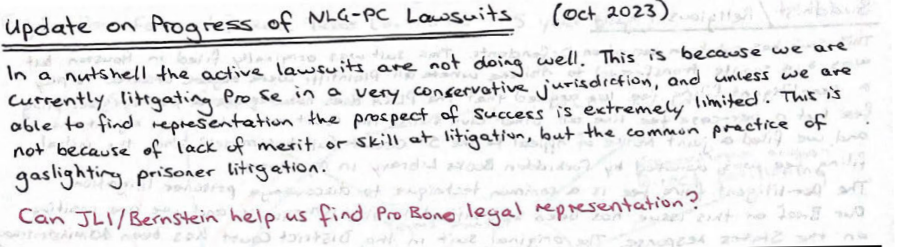 Update on Progress of NLG-PC Lawsuits (Oct 2023)
In a nutshell the active lawsuits are not doing well. This is because we are
currently litigating Pro Se in a very conservative jurisdiction, and unless we are
able to find representation the prospect of success is extremely limited. This is
not because of lack of merit or skill at litigation, but the common practice of
gaslighting prisoner litigation.
Can JLI/Bernstein help us find Pro Bono legal representation?